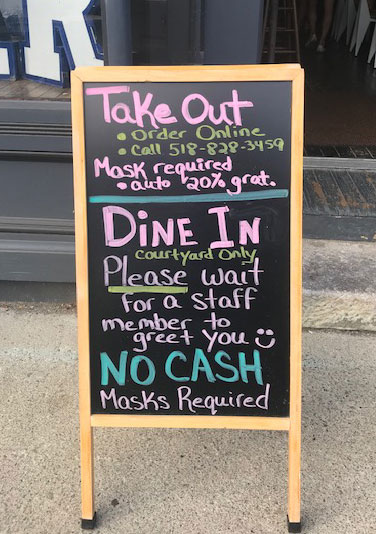 Take Out
• Order Online
• Call 518-828-3459
Mask required
• auto 20% grat.
DINE IN
courtyard Only
Please wait
for a staff
member to
greet you
NO CASH
Masks Required